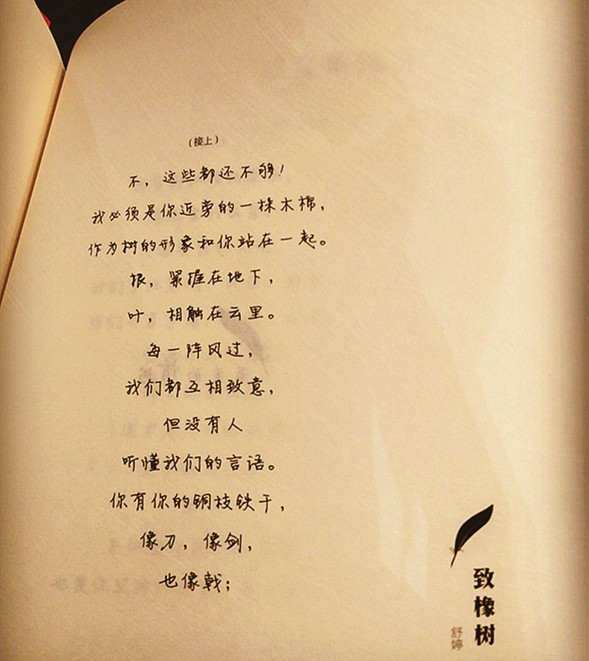 （接上）
不，这些都还不够！
我必须是你近旁的一株木棉，
作为树的形象和你站在一起。
根，紧握在地下，
叶，相触在云里。
每一阵风过，
我们都互相致意，
但没有人
听懂我们的言语。
你有你的铜枝铁干，
像刀，像剑，
也像戟；
致橡树
舒婷